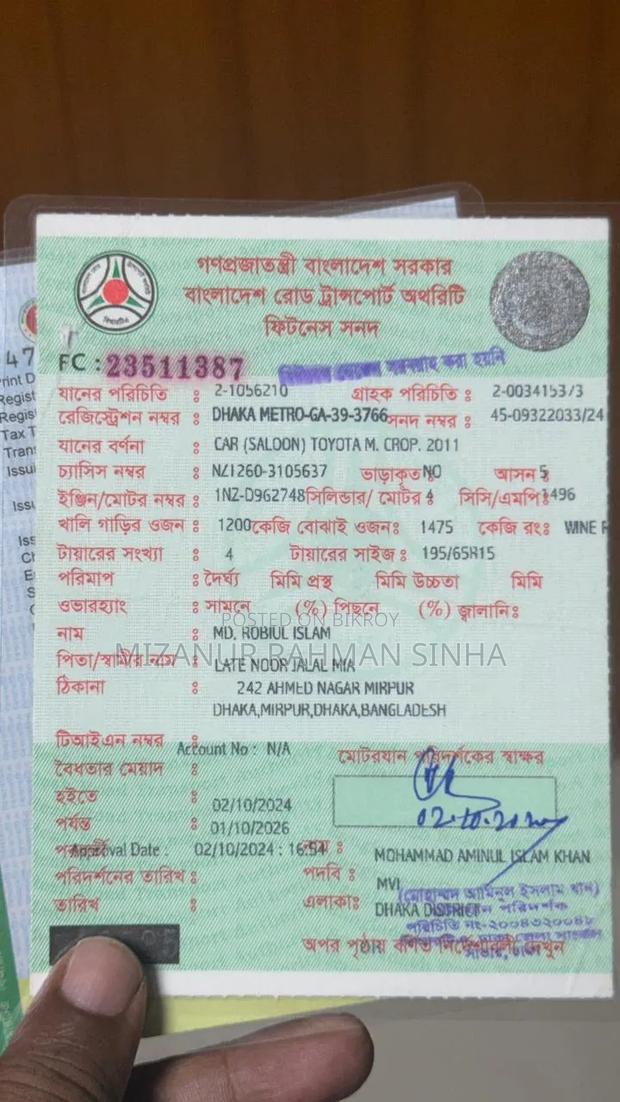 গণপ্রজাতন্ত্রী বাংলাদেশ সরকার
বাংলাদেশ রোড ট্রান্সপোর্ট অথরিটি
ফিটনেস সনদ
FC : 23511387
সরবরাহ করা হয়নি
যানের পরিচিতি : 2-1056210 গ্রাহক পরিচিতি : 2-0034153/3
রেজিস্ট্রেশন নম্বর : DHAKA METRO-GA-39-3766 সনদ নম্বর : 45-09322033/24
যানের বর্ণনা : CAR (SALOON) TOYOTA M. CROP. 2011
চ্যাসিস নম্বর : NZ1260-3105637 ভাড়াকৃত NO আসন 5
ইঞ্জিন/মোটর নম্বর : 1NZ-D962748 সিলিন্ডার/ মোটর 4 সিসি/এমপি: 1496
খালি গাড়ির ওজন : 1200 কেজি বোঝাই ওজন: 1475 কেজি রং: WINE
টায়ারের সংখ্যা : 4 টায়ারের সাইজ : 195/65R15
পরিমাপ : দৈর্ঘ্য মিমি প্রস্থ মিমি উচ্চতা মিমি
ওভারহ্যাং : সামনে (%) পিছনে (%) জ্বালানি:
POSTED ON BIKROY
নাম : MD. ROBIUL ISLAM
MIZANUR RAHMAN SINHA
পিতা/স্বামীর নাম : LATE NOOR JALAL MIA
ঠিকানা : 242 AHMED NAGAR MIRPUR
DHAKA,MIRPUR,DHAKA,BANGLADESH
টিআইএন নম্বর :
Account No : N/A মোটরযান পরিদর্শকের স্বাক্ষর
বৈধতার মেয়াদ :
হইতে : 02/10/2024
পর্যন্ত : 01/10/2026
02.10.2024
Approval Date : 02/10/2024 : 16:54 নাম :
MOHAMMAD AMINUL ISLAM KHAN
পরিদর্শনের তারিখ : পদবি : MVI
(মোহাম্মদ আমিনুল ইসলাম খান)
তারিখ : এলাকা: DHAKA DISTRICT
পরিদর্শক
পরিচিতি নং-২০০৪৩২০০৪৮
অপর পৃষ্ঠায় বর্ণিত নির্দেশাবলী দেখুন
47
Print D
Regist
Regis
Tax T
Tran
Issu